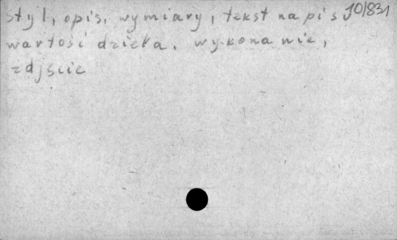 styl, opis, wymiary, tekst napisu 10/831
wartość dzieła, wykonanie,
zdjęcie